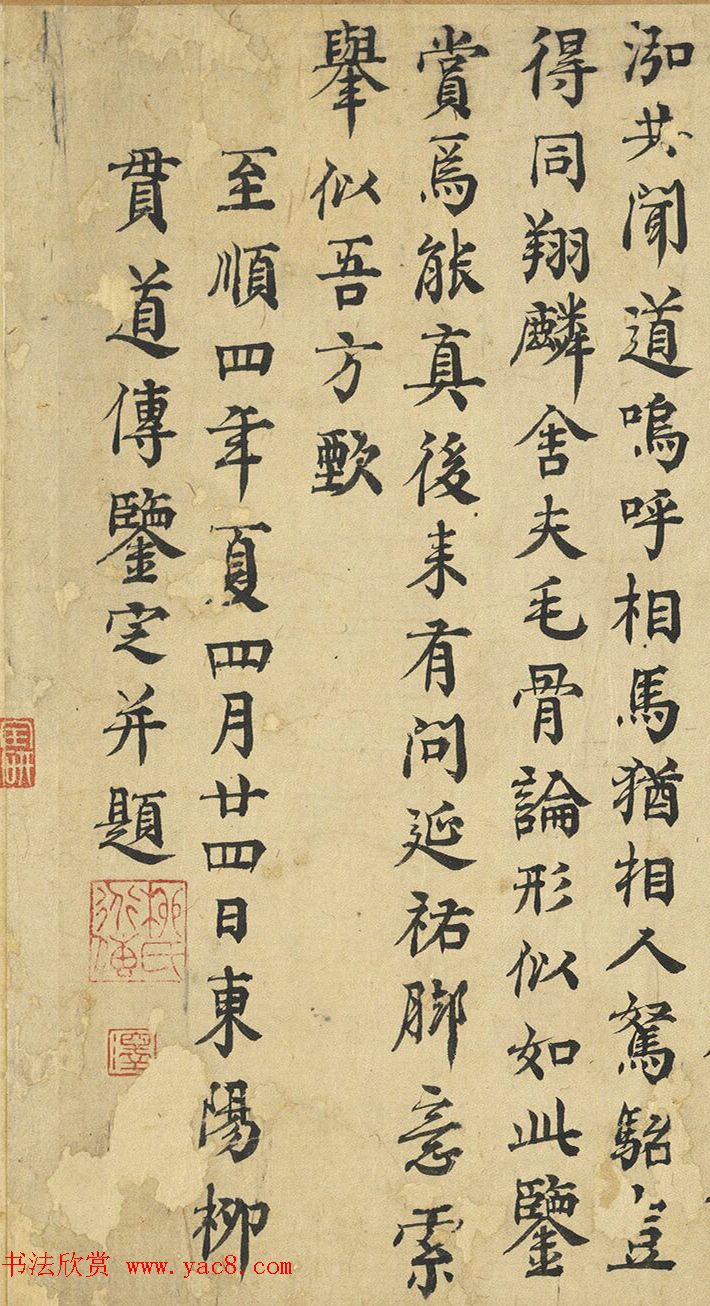 泓共聞道嗚呼相馬猶相人駑駘豈
得同翔麟舍夫毛骨論形似如此鑒
賞焉能真後来有問延祐脚意索
舉似吾方甄
至順四年夏四月廿四日東陽柳
貫道傳鑒定并題
柳氏道傳
书法欣赏 www.yac8.com